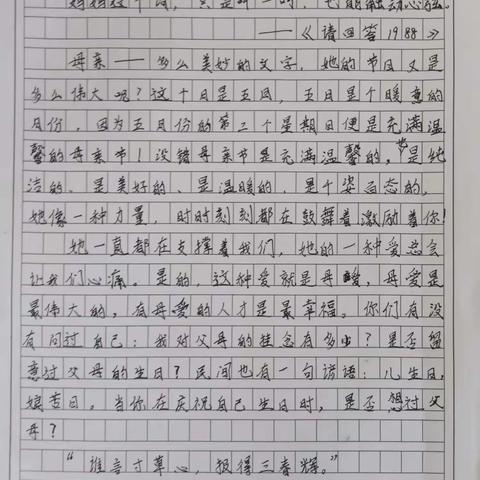 妈妈这个词，只是叫一叫，也能触动心弦。
——《请回答1988》
母亲——多么美好的文字，她的节日又是
多么伟大呢？这个月是五月，五月是个暖意的
月份，因为五月份的第二个星期日便是充满温
馨的母亲节！没错母亲节是充满温馨的，也是纯
洁的、是美好的、是温暖的，是千姿百态的，
她像一种力量，时时刻刻都在鼓舞着激励着你！
她一直都在支撑着我们，她的一种爱总会
让我们心痛。是的，这种爱就是母爱，母爱是
最伟大的，有母爱的人才是最幸福。你们有没
有问过自己：我对父母的挂念有多少？是否留
意过父母的生日？民间也有一句谚语：儿生日，
娘苦日。当你在庆祝自己生日时，是否想过父
母？
“谁言寸草心，报得三春辉。”